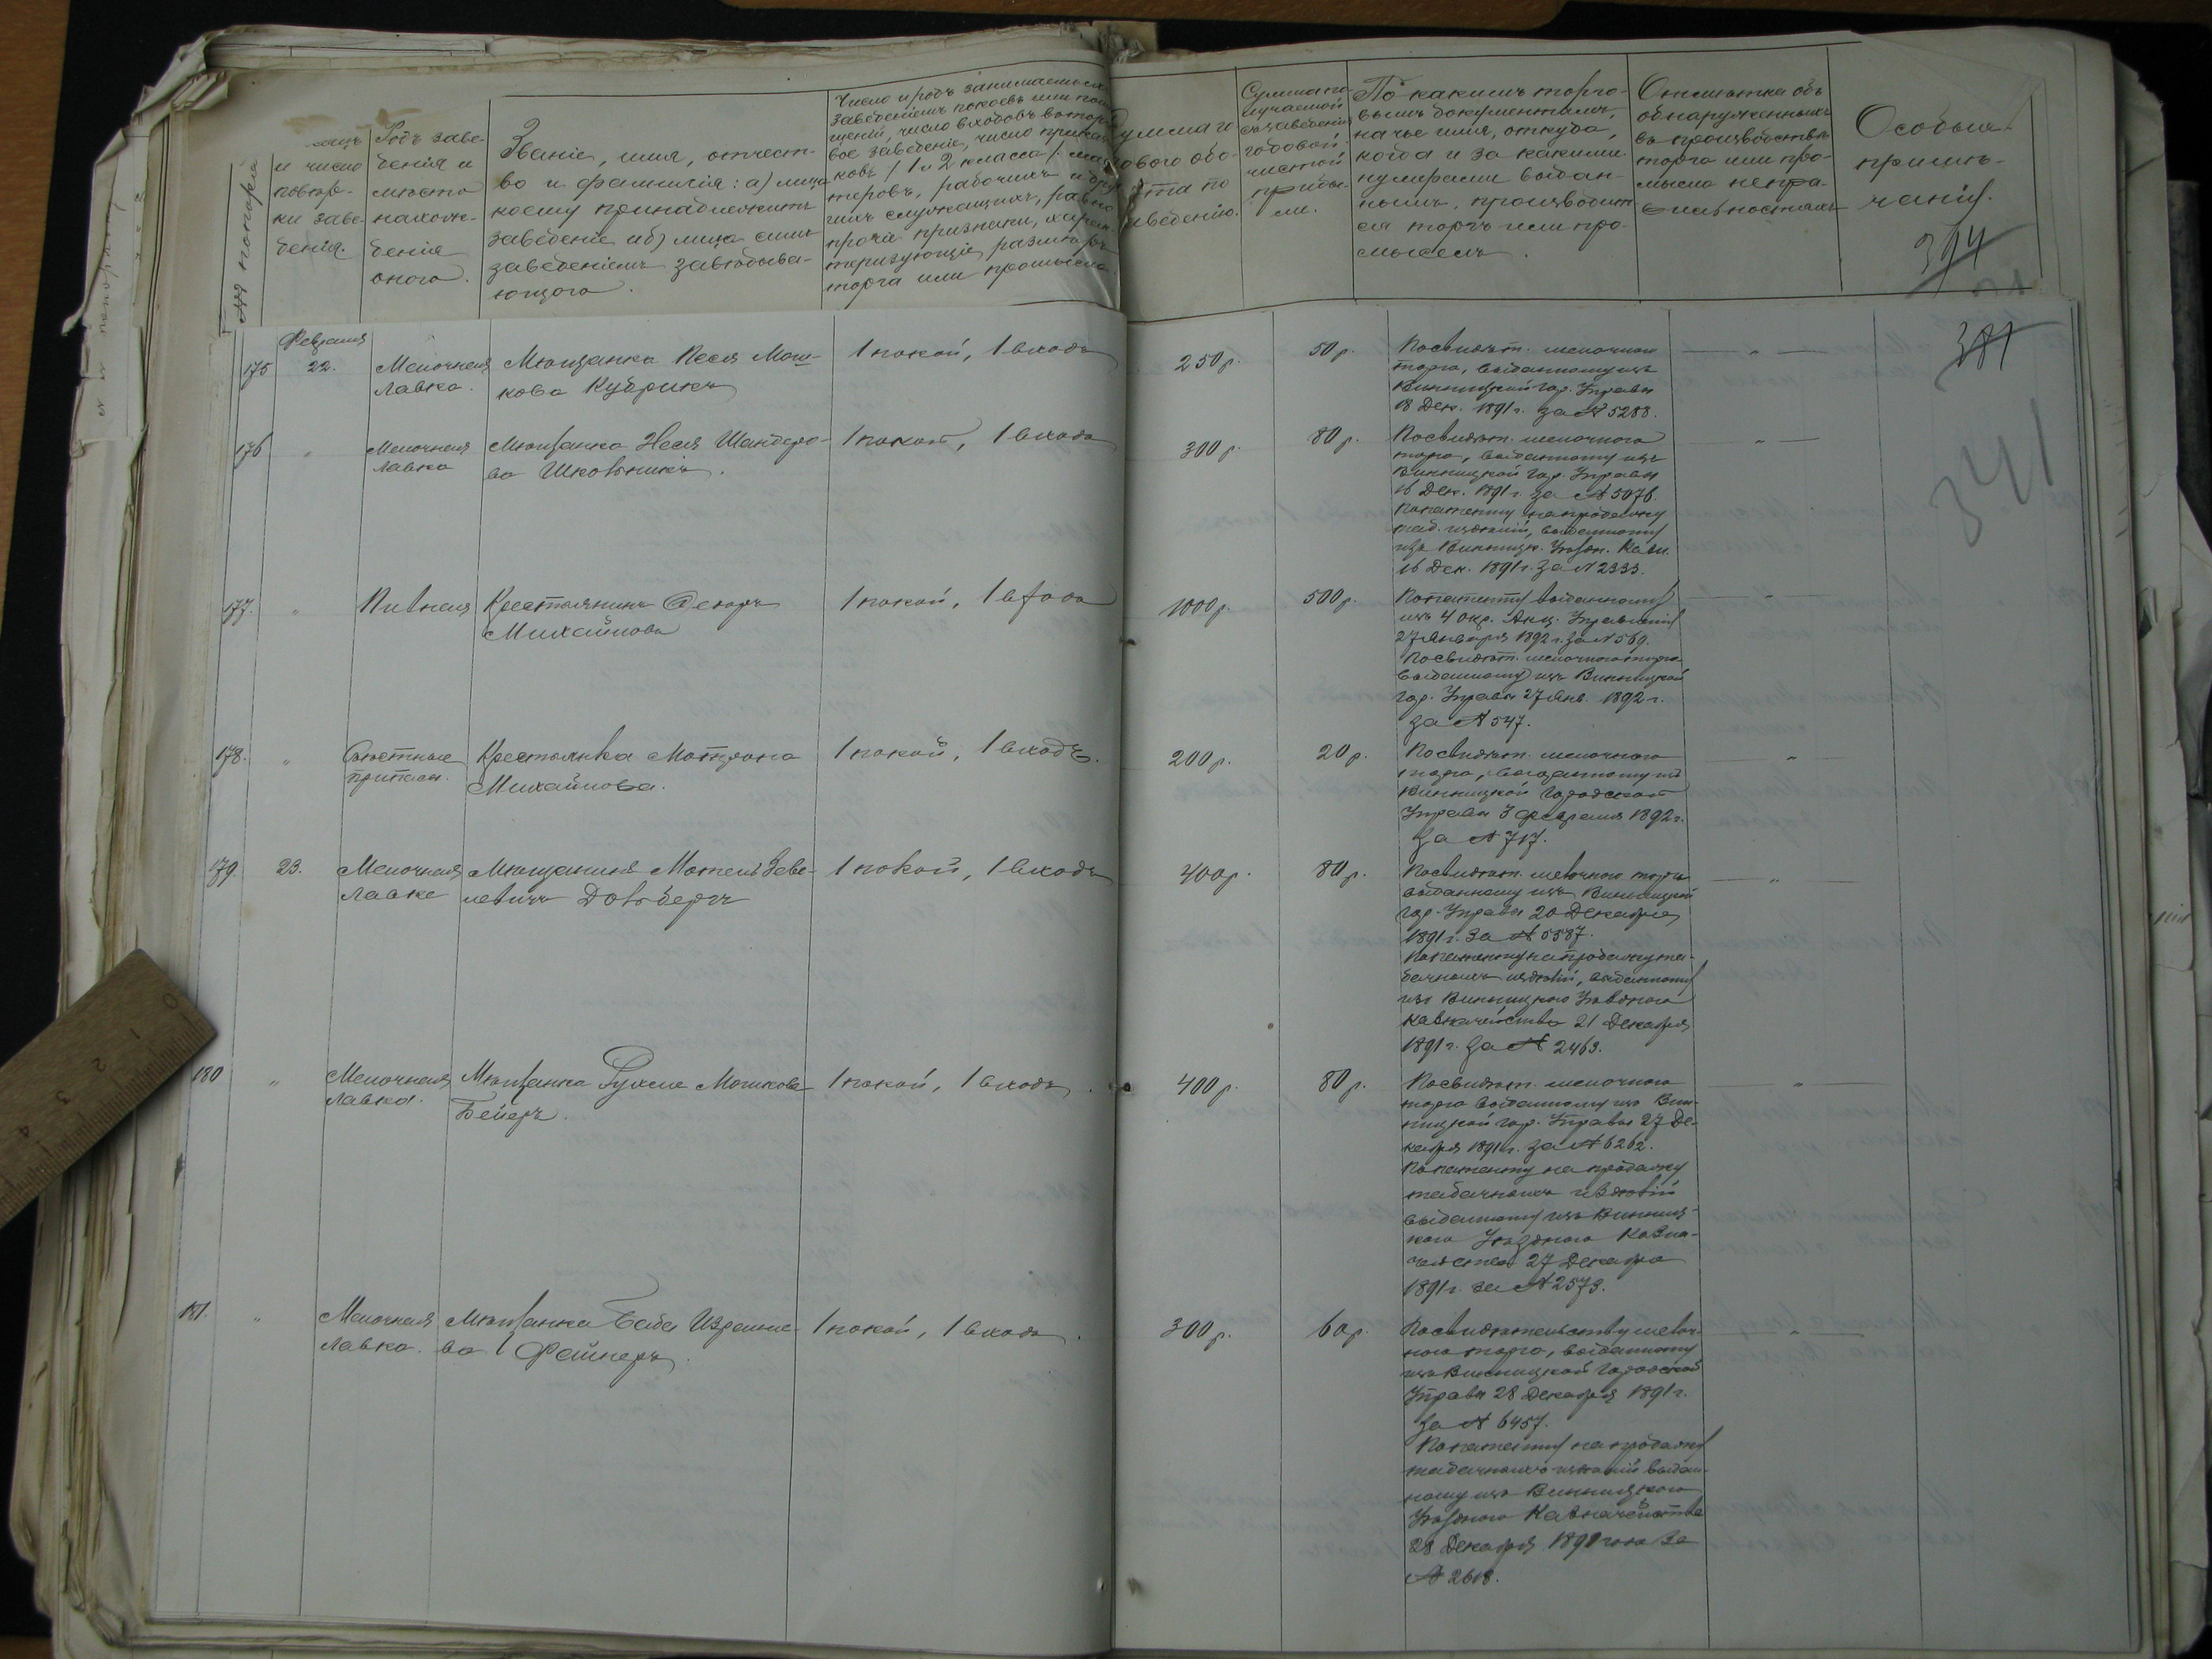 №№ по порядку
и число
повѣр-
ки заве-
денія.
Родъ заве-
денія и
мѣсто
нахож-
денія
онаго.
Званіе, имя, отчест-
во и фамилія: а) лица
коему принадлежитъ
заведеніе и б) лица симъ
заведеніемъ завѣдыва-
ющаго.
Число и родъ занимаемыхъ
заведеніемъ покоевъ или
щеній, число входовъ въ
вое заведеніе, число прикащи
ковъ (1 и 2 класса),
теровъ, рабочихъ и дру
гихъ служащихъ, равно
прочіе признаки, харак
теризующіе размѣръ
торга или промысла.
Сумма го
дового обо-
рота по
заведенію.
Сумма по-
лучаемой
съ заведенія
годовой
чистой
прибы-
ли.
По какимъ торго-
вымъ документамъ,
на чье имя, откуда,
когда и за какими
нумерами выдан-
нымъ, производит-
ся торгъ или про-
мыселъ.
Отмѣтка объ
обнаруженныхъ
въ производствѣ
торга или про-
мысла непра-
вильностяхъ
Особыя
примѣ-
чанія.
394
381
341
Февраля
175 22. Мелочная Мѣщанка Песя Мош- 1 покой, 1 входъ 250 р. 50 р. По свидѣт. мелочного — " —
лавка. кова Кубрикъ
торга, выданному изъ
Винницкой Гор. Управы
18 Дек. 1891 г. за № 5288.
176 " Мелочная Мѣщанка Неся Шандеро- 1 покой, 1 входъ 300 р. 80 р. По свидѣт. мелочного — " —
лавка ва Школьникъ.
торга, выданному изъ
Винницкой Гор. Управы
16 Дек. 1891 г. за № 5076.
По патенту на продажу
таб. издѣлій, выданному
изъ Винницк. Уѣздн. Казн.
16 Дек. 1891 г. за № 2333.
177. " Пивная Крестьянинъ Федоръ 1 покой, 1 входъ 1000 р. 500 р. По патенту выданному — " —
Михайловъ
изъ 4 окр. Акц. Управленія
27 Января 1892 г. за № 569.
По свидѣт. мелочного торга
выданному изъ Винницкой
Гор. Управы 27 Янв. 1892 г.
за № 547.
178. " Съѣстные Крестьянка Матрона 1 покой, 1 входъ. 200 р. 20 р. По свидѣт. мелочного — " —
припасы. Михайлова.
торга, выданному изъ
Винницкой Городской
Управы 3 февраля 1892 г.
за № 717.
179. 23. Мелочная Мѣщанинъ Мотель Зеве- 1 покой, 1 входъ 400 р. 80 р. По свидѣт. мелочного торга — " —
лавка левичъ Довбергъ
выданному изъ Винницкой
Гор. Управы 20 Декабря
1891 г. за № 5587.
По патенту на продажу та-
бачныхъ издѣлій, выданному
изъ Винницкаго Уѣзднаго
Казначейства 21 Декабря
1891 г. за № 2463.
180 " Мелочная Мѣщанка Рухля Мошкова 1 покой, 1 входъ. 400 р. 80 р. По свидѣт. мелочного "
лавка. Бейеръ.
торга выданному изъ Вин-
ницкой Гор. Управы 27 Де-
кабря 1891 г. за № 6262.
По патенту на продажу
табачныхъ издѣлій
выданному изъ Винниц-
каго Уѣзднаго Казна-
чейства 27 Декабря
1891 г. за № 2573.
181. " Мелочная Мѣщанка Баба Израиле- 1 покой, 1 входъ. 300 р. 60 р. По свидѣтельству мелоч- — " —
лавка. ва Файнеръ.
ного торга, выданному
изъ Винницкой Городской
Управы 28 Декабря 1891 г.
за № 6457.
По патенту на продажу
табачныхъ издѣлій выдан-
ному изъ Винницкаго
Уѣзднаго Казначейства
28 Декабря 1891 года за
№ 2618.